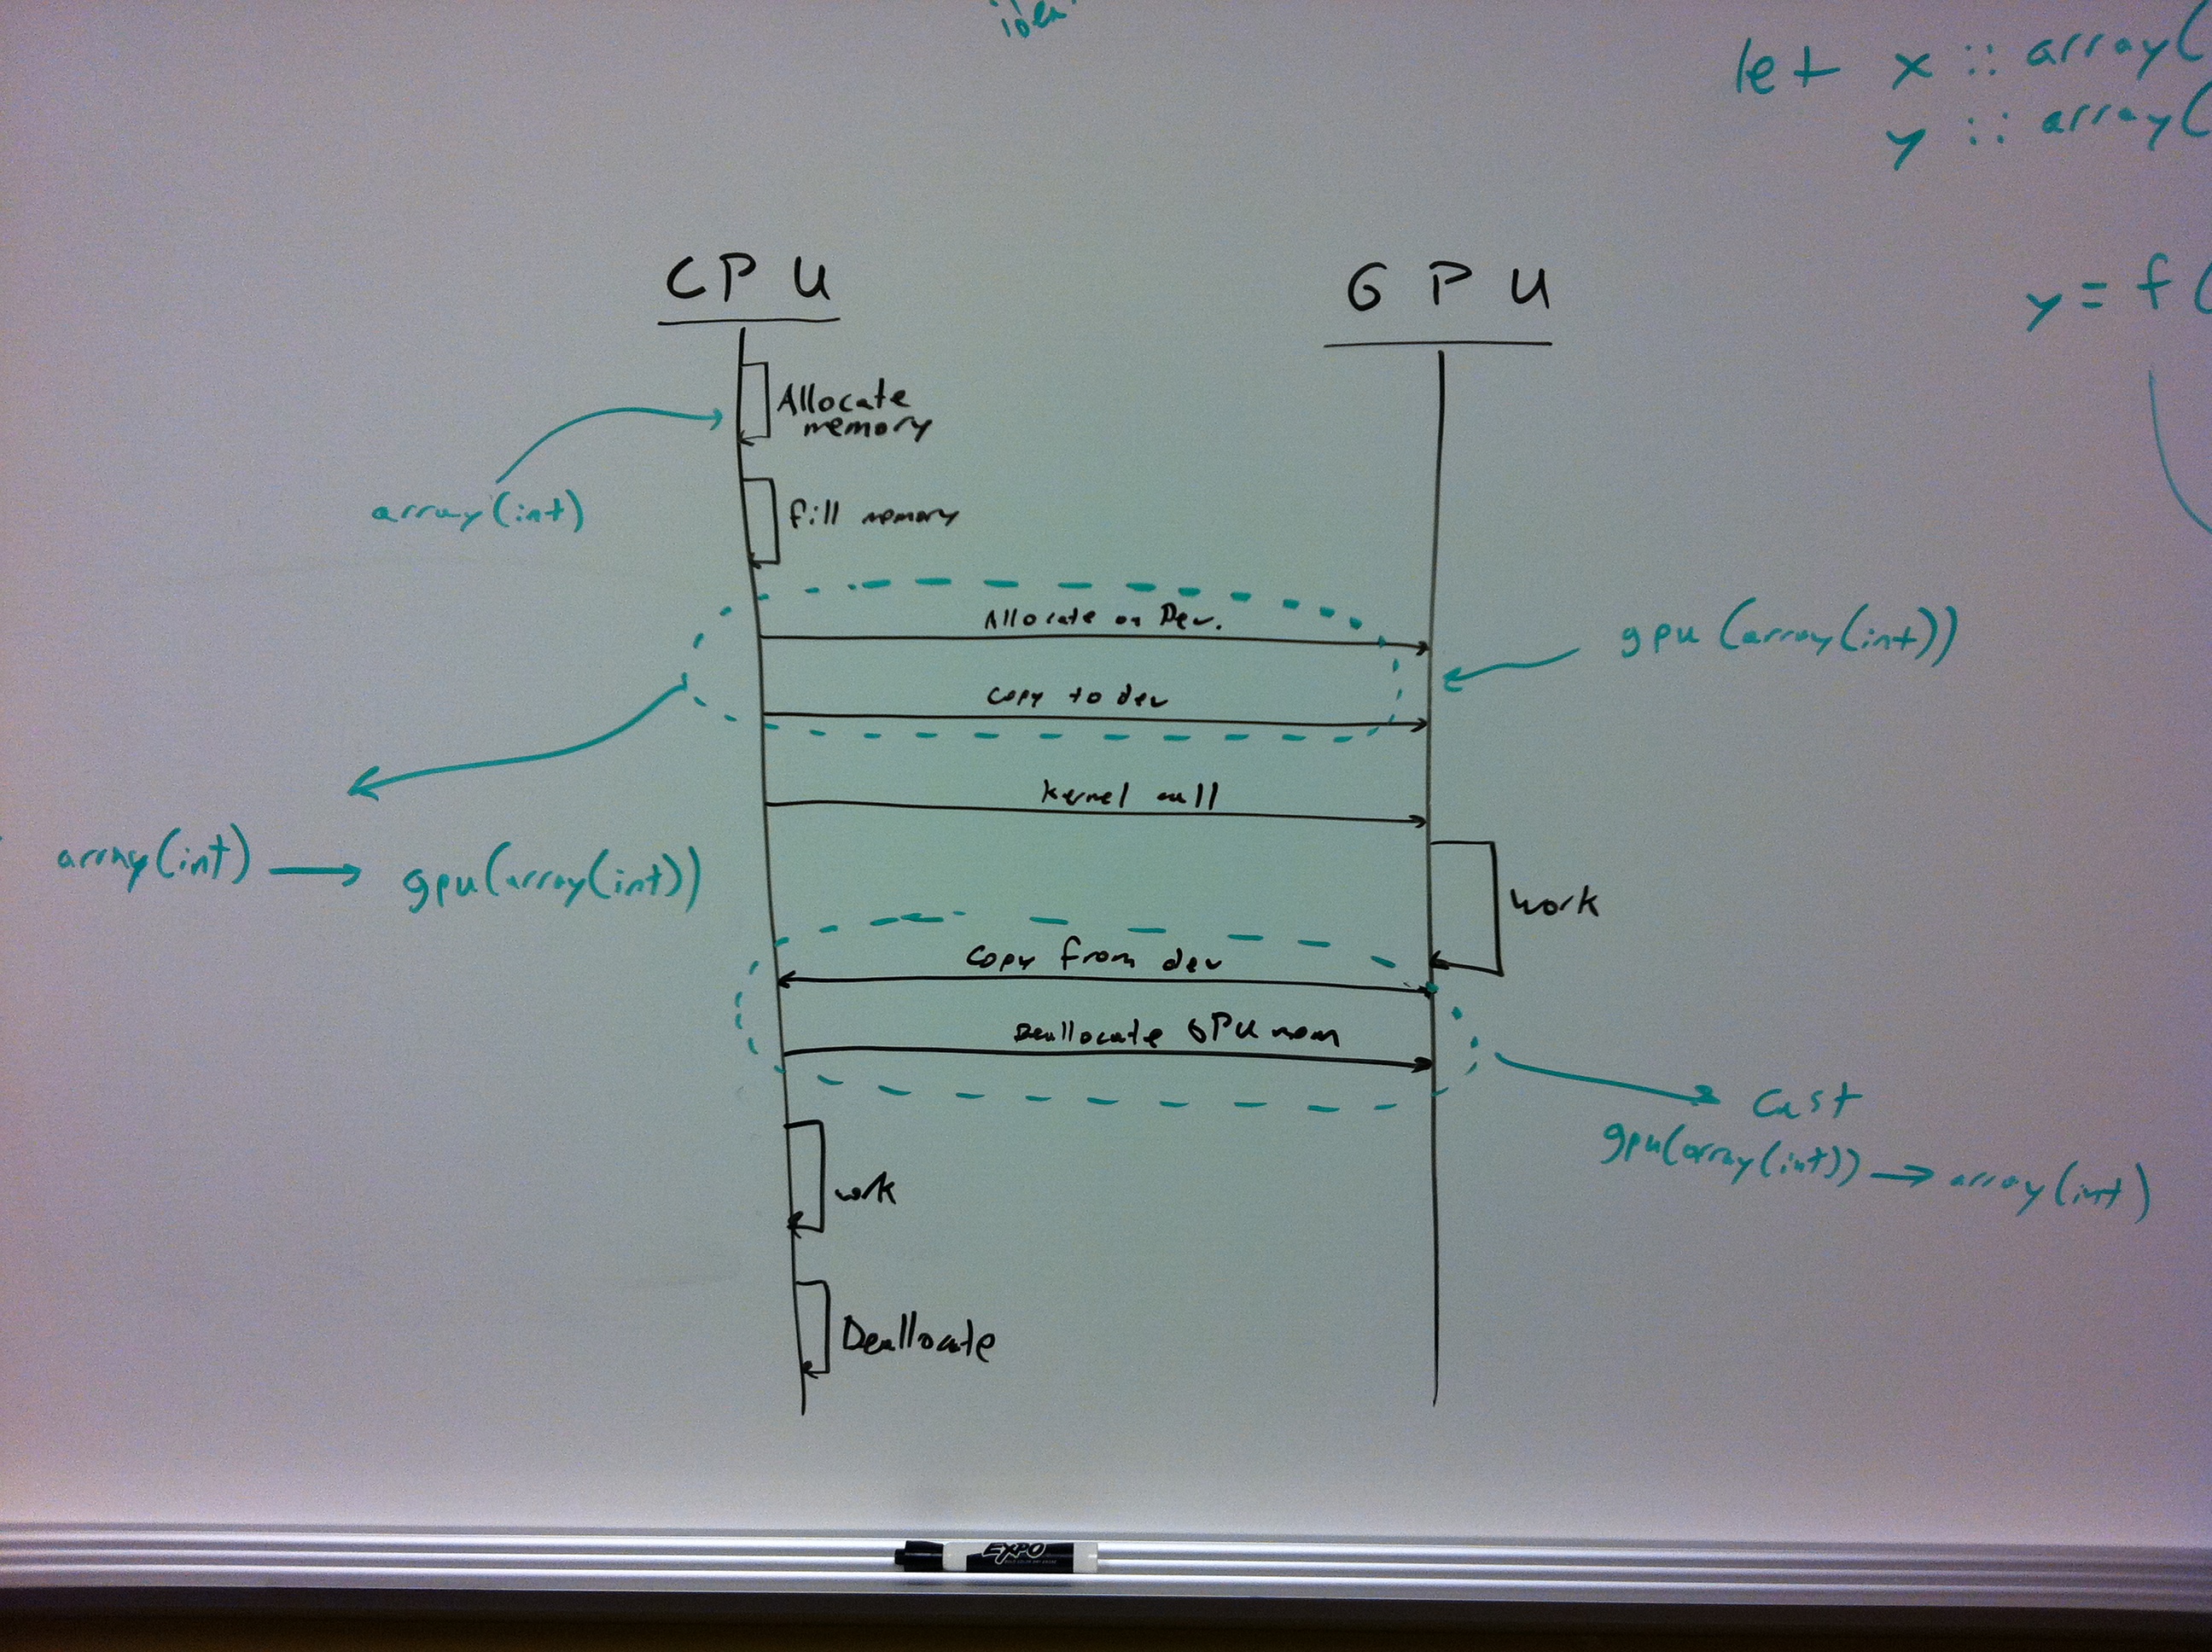 idea
let x :: array(
y :: array(
CPU
GPU
y = f(
Allocate
memory
array(int)
fill memory
Allocate on Dev.
gpu(array(int))
Copy to dev
Kernel call
array(int) → gpu(array(int))
Work
Copy from dev
Deallocate GPU mem
Cast
gpu(array(int)) → array(int)
work
Deallocate
EXPO